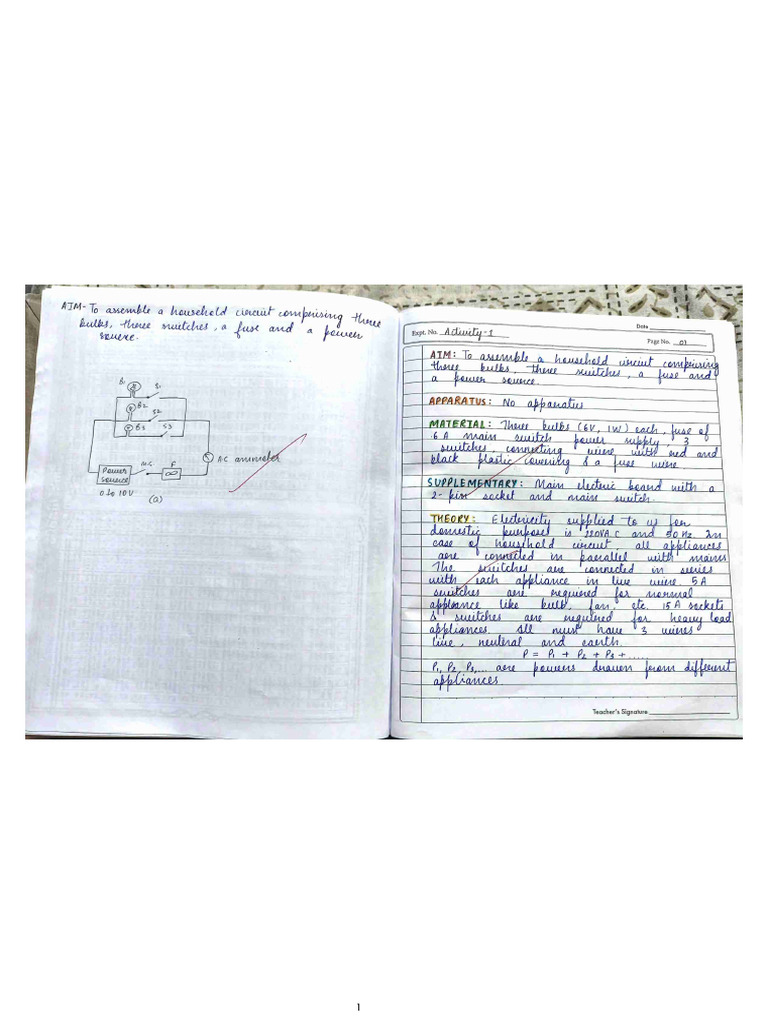 AIM- To assemble a household circuit comprising three
bulbs, three switches, a fuse and a power
source.
B1
S1
B2
S2
B3
S3
AC ammeter
Power
source
M.S
F
0 to 10V
(a)
Date
Expt. No. Activity-1
Page No. 01
AIM: To assemble a household circuit comprising
three bulbs, three switches, a fuse and
a power source.
APPARATUS: No apparatus
MATERIAL: Three bulbs (6V, 1W) each, fuse of
.6 A main switch power supply, 3
switches connecting wire with red and
black plastic covering & a fuse wire.
SUPPLEMENTARY: Main electric board with a
2-pin socket and main switch.
THEORY: Electricity supplied to us for
domestic purposes is 220V A.C and 50 Hz. In
case of household circuit all appliances
are connected in parallel with mains
The switches are connected in series
with each appliance in live wire. 5 A
switches are required for normal
appliance like bulb, fan, etc. 15 A sockets
& switches are required for heavy load
appliances. All must have 3 wires
live, neutral and earth.
P = P1 + P2 + P3 + .....
P1, P2, P3,... are powers drawn from different
appliances
Teacher's Signature
1